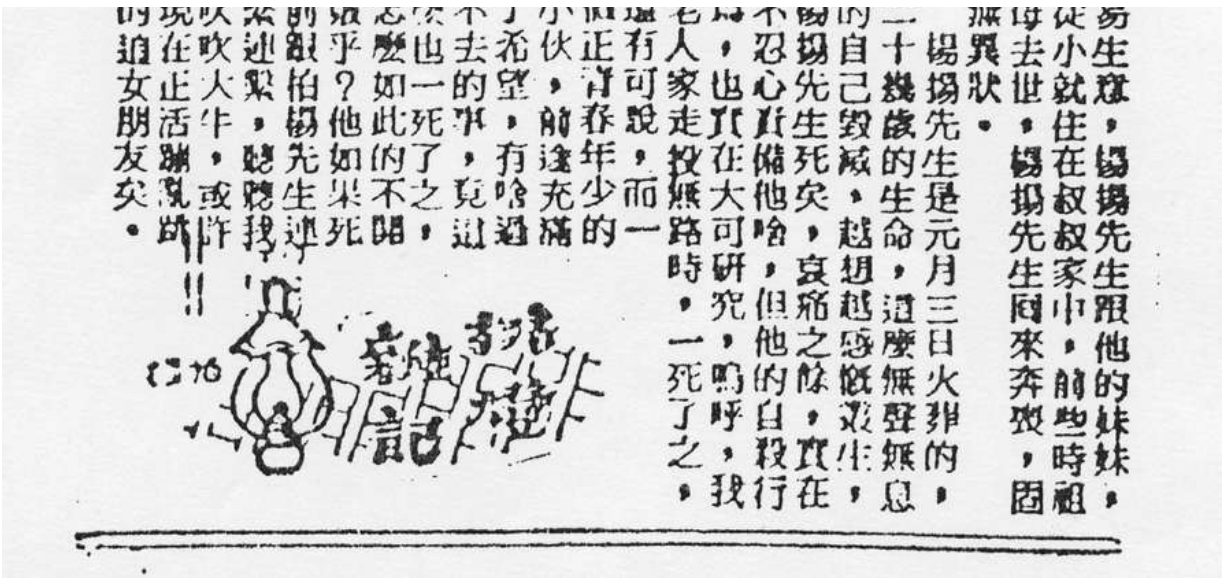 易生意，楊揚先生跟他的妹妹，
從小就住在叔叔家中，前些時祖
母去世，楊揚先生回來奔喪，固
無異狀。
楊揚先生是元月三日火葬的，
二十幾歲的生命，這麼無聲無息
的自己毀滅，越想越感慨叢生，
楊揚先生死矣，哀痛之餘，實在
不忍心責備他啥，但他的自殺行
為，也實在大可研究，嗚呼，我
老人家走投無路時，一死了之，
還有可說，而一
個正青春年少的
小伙，前途充滿
了希望，有啥過
不去的事，竟這
麼也一死了之，
怎麼如此的不開
乎？他如果死
前跟伯楊先生連
連繫，聽聽我
吹吹大牛，或許
現在正活蹦亂跳
的追女朋友矣。